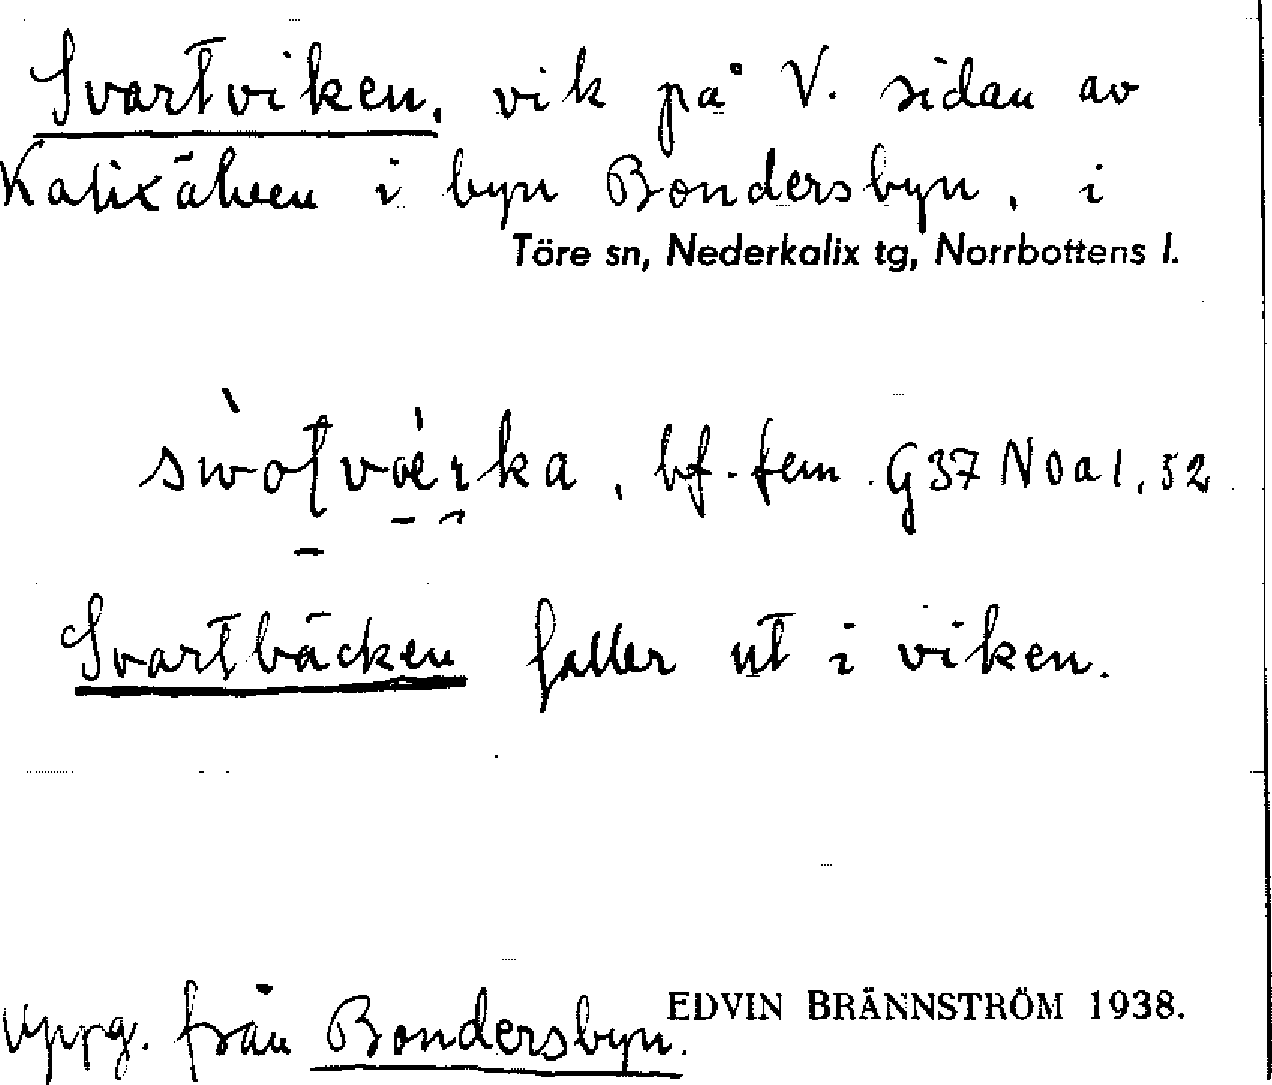 Svartviken, vik på V. sidan av
Kalixälven i byn Bondersbyn, i
Töre sn, Nederkalix tg, Norrbottens l.
bf. fem. G37 N0a1,52
Svartbäcken faller ut i viken.
Uppg. från Bondersbyn.
EDVIN BRÄNNSTRÖM 1938.